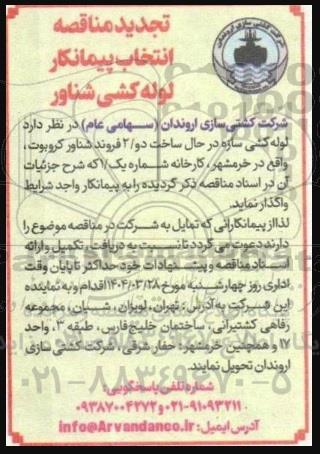 تجدید مناقصه
انتخاب پیمانکار
لوله کشی شناور
شرکت کشتی سازی اروندان (سهامی عام) در نظر دارد
لوله کشی سازه در حال ساخت دو/۲ فروند شناور کروبوت،
واقع در خرمشهر، کارخانه شماره یک/۱ که شرح جزئیات
آن در اسناد مناقصه ذکر گردیده را به پیمانکار واجد شرایط
واگذار نماید.
لذا از پیمانکارانی که تمایل به شرکت در مناقصه موضوع را
دارند دعوت می گردد تا نسبت به دریافت، تکمیل و ارائه
اسناد مناقصه و پیشنهادات خود حداکثر تا پایان وقت
اداری روز چهارشنبه مورخ ۱۴۰۴/۰۳/۲۸ اقدام و به نماینده
این شرکت به آدرس: تهران، لویزان، شیان، مجموعه
رفاهی کشتیرانی، ساختمان خلیج فارس، طبقه ۳، واحد
۱۷ و همچنین خرمشهر، حفار شرقی، شرکت کشتی سازی
اروندان تحویل نمایند.
شماره تلفن پاسخگویی:
۰۲۱-۹۱۰۹۳۲۱۱ و ۰۹۳۸۷۰۰۴۲۷۲
آدرس ایمیل: info@Arvandanco.Ir
۰۲۱-۸۸۳۴۹۶۷۰-۵